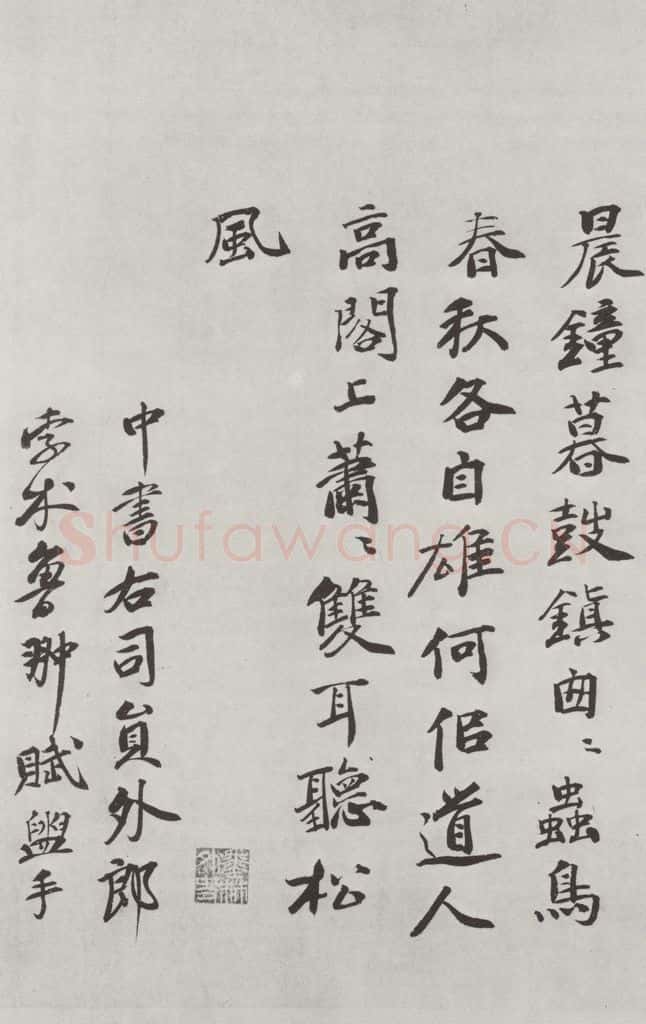 晨鐘暮鼓鎮囱〻蟲鳥
春秋各自雄何佀道人
高閣上蕭〻雙耳聽松
風
中書右司員外郎
孛术魯翀賦盥手
Shufawang.CN